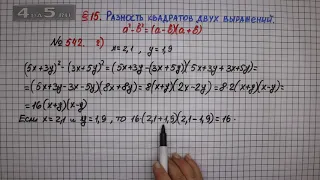 4 на 5.ru
§15. Разность квадратов двух выражений.
a²-b²=(a-b)(a+b)
№542. 2) x=2,1 , y=1,9
(5x+3y)²-(3x+5y)²=(5x+3y-(3x+5y))(5x+3y+3x+5y)=
=(5x+3y-3x-5y)(8x+8y)=8(x+y)(2x-2y)=8·2(x+y)(x-y)=
=16(x+y)(x-y)
Если x=2,1 и y=1,9, то 16·(2,1+1,9)(2,1-1,9)=16·